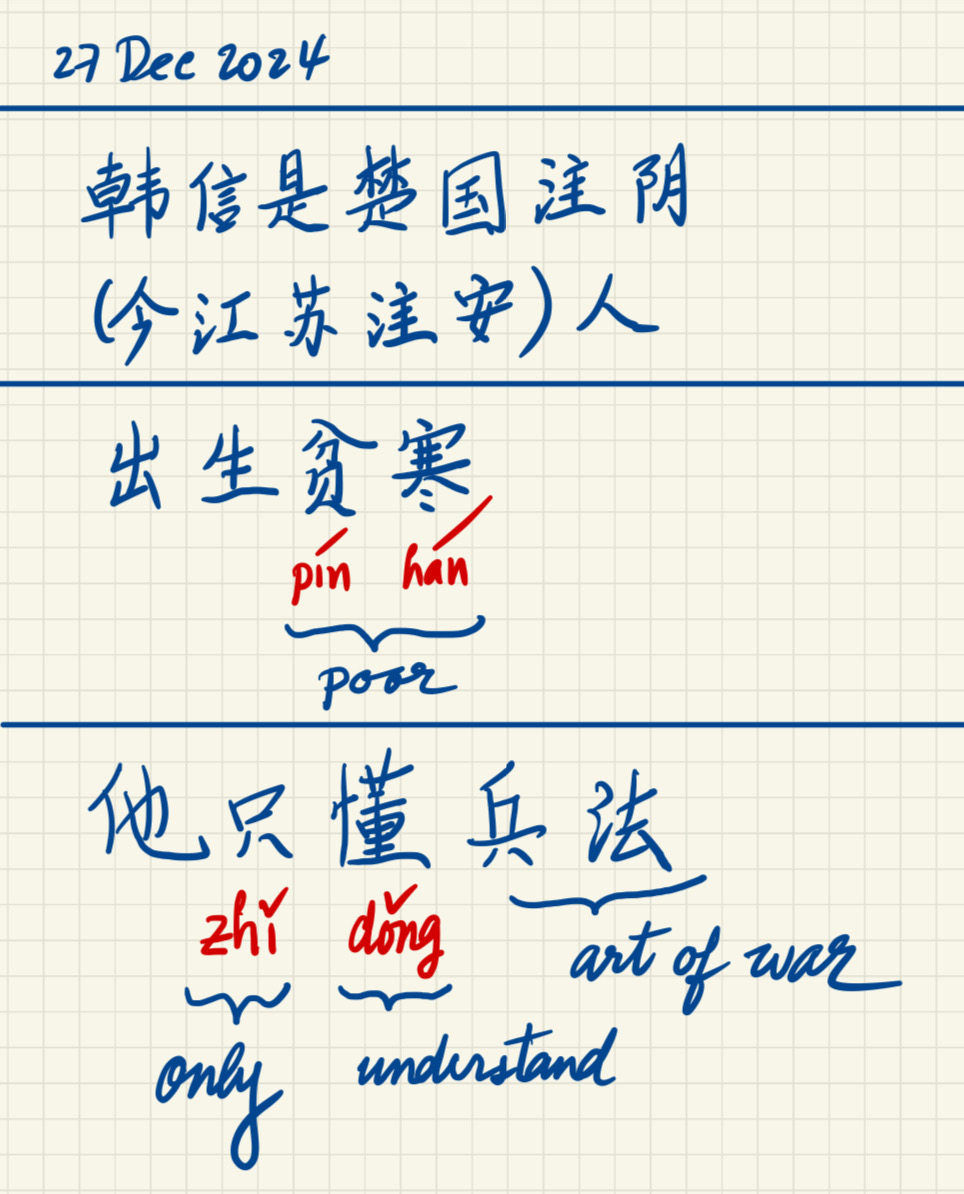 27 Dec 2024
韩信是楚国淮阴
(今江苏淮安)人
出生贫寒
pín hán
poor
他只懂兵法
zhǐ dǒng
art of war
only understand